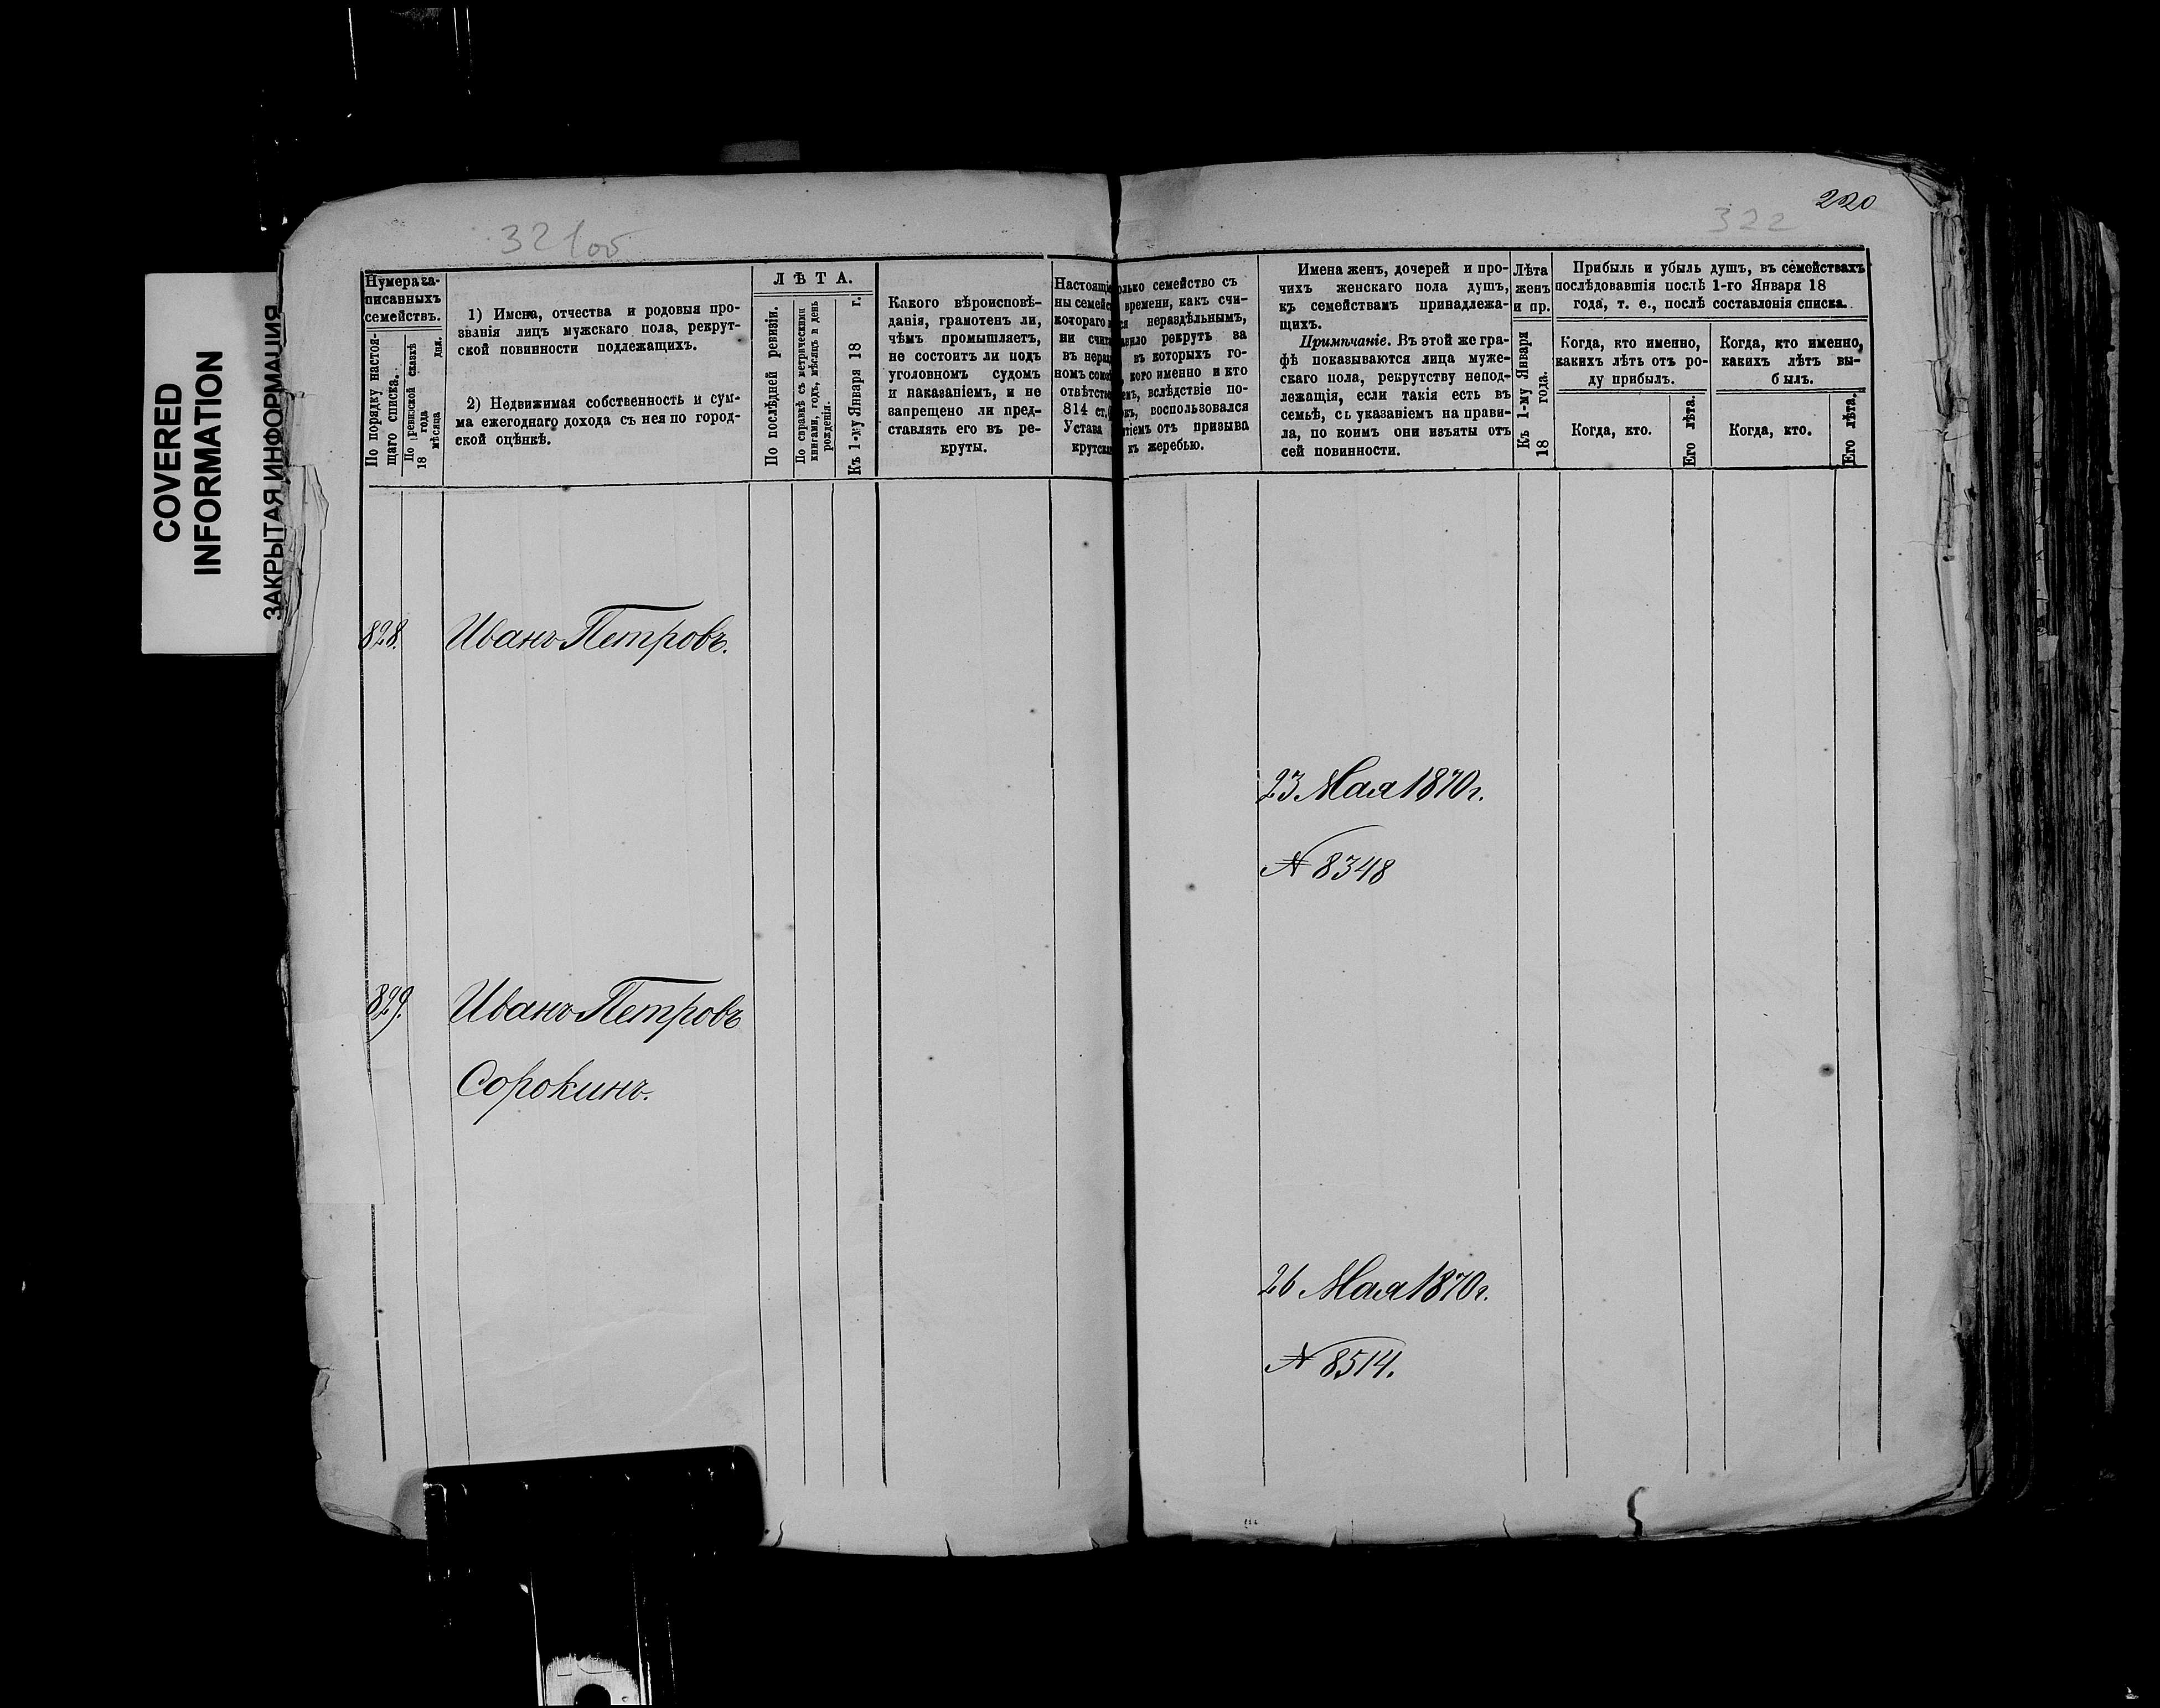 COVERED
INFORMATION
ЗАКРЫТАЯ ИНФОРМАЦИЯ
321об
Нумера за-
писанныхъ
семействъ.
По порядку настоя-
щаго списка.
По ревизской сказкѣ
18 года
мѣсяца дня.
1) Имена, отчества и родовыя про-
званія лицъ мужскаго пола, рекрут-
ской повинности подлежащихъ.
2) Недвижимая собственность и сум-
ма ежегоднаго дохода съ нея по город-
ской оцѣнкѣ.
ЛѢТА.
По послѣдней ревизіи.
По справкѣ съ метрическими
книгами, годъ, мѣсяцъ и день
рожденія.
Къ 1-му Января 18 г.
Какого вѣроисповѣ-
данія, грамотенъ ли,
чѣмъ промышляетъ,
не состоитъ ли подъ
уголовномъ судомъ
и наказаніемъ, и не
запрещено ли пред-
ставлять его въ ре-
круты.
ны семейс
котораго
въ нераз
814 ст.
Устава
крутска
828.
Иванъ Петровъ.
829.
Иванъ Петровъ
Сорокинъ.
220
322
олько семейство съ
времени, какъ счи-
ся нераздѣльнымъ,
авило рекрутъ за
въ которыхъ го-
кого именно и кто
емъ, вслѣдствіе по-
воспользовался
тіемъ отъ призыва
къ жеребью.
Имена женъ, дочерей и про-
чихъ женскаго пола душъ,
къ семействамъ принадлежа-
щихъ.
Примѣчаніе. Въ этой же гра-
фѣ показываются лица муже-
скаго пола, рекрутству непод-
лежащія, если такія есть въ
семьѣ, съ указаніемъ на прави-
ла, по коимъ они изъяты отъ
сей повинности.
Лѣта
женъ
и пр.
Къ 1-му Января
18 года.
Прибыль и убыль душъ, въ семействахъ
послѣдовавшія послѣ 1-го Января 18
года, т. е., послѣ составлонія списка.
Когда, кто именно,
какихъ лѣтъ отъ ро-
ду прибылъ.
Когда, кто.
Его лѣта.
Когда, кто именно,
какихъ лѣтъ вы-
былъ.
Когда, кто.
Его лѣта.
23 Мая 1870 г.
№ 8348
26 Мая 1870 г.
№ 8514.